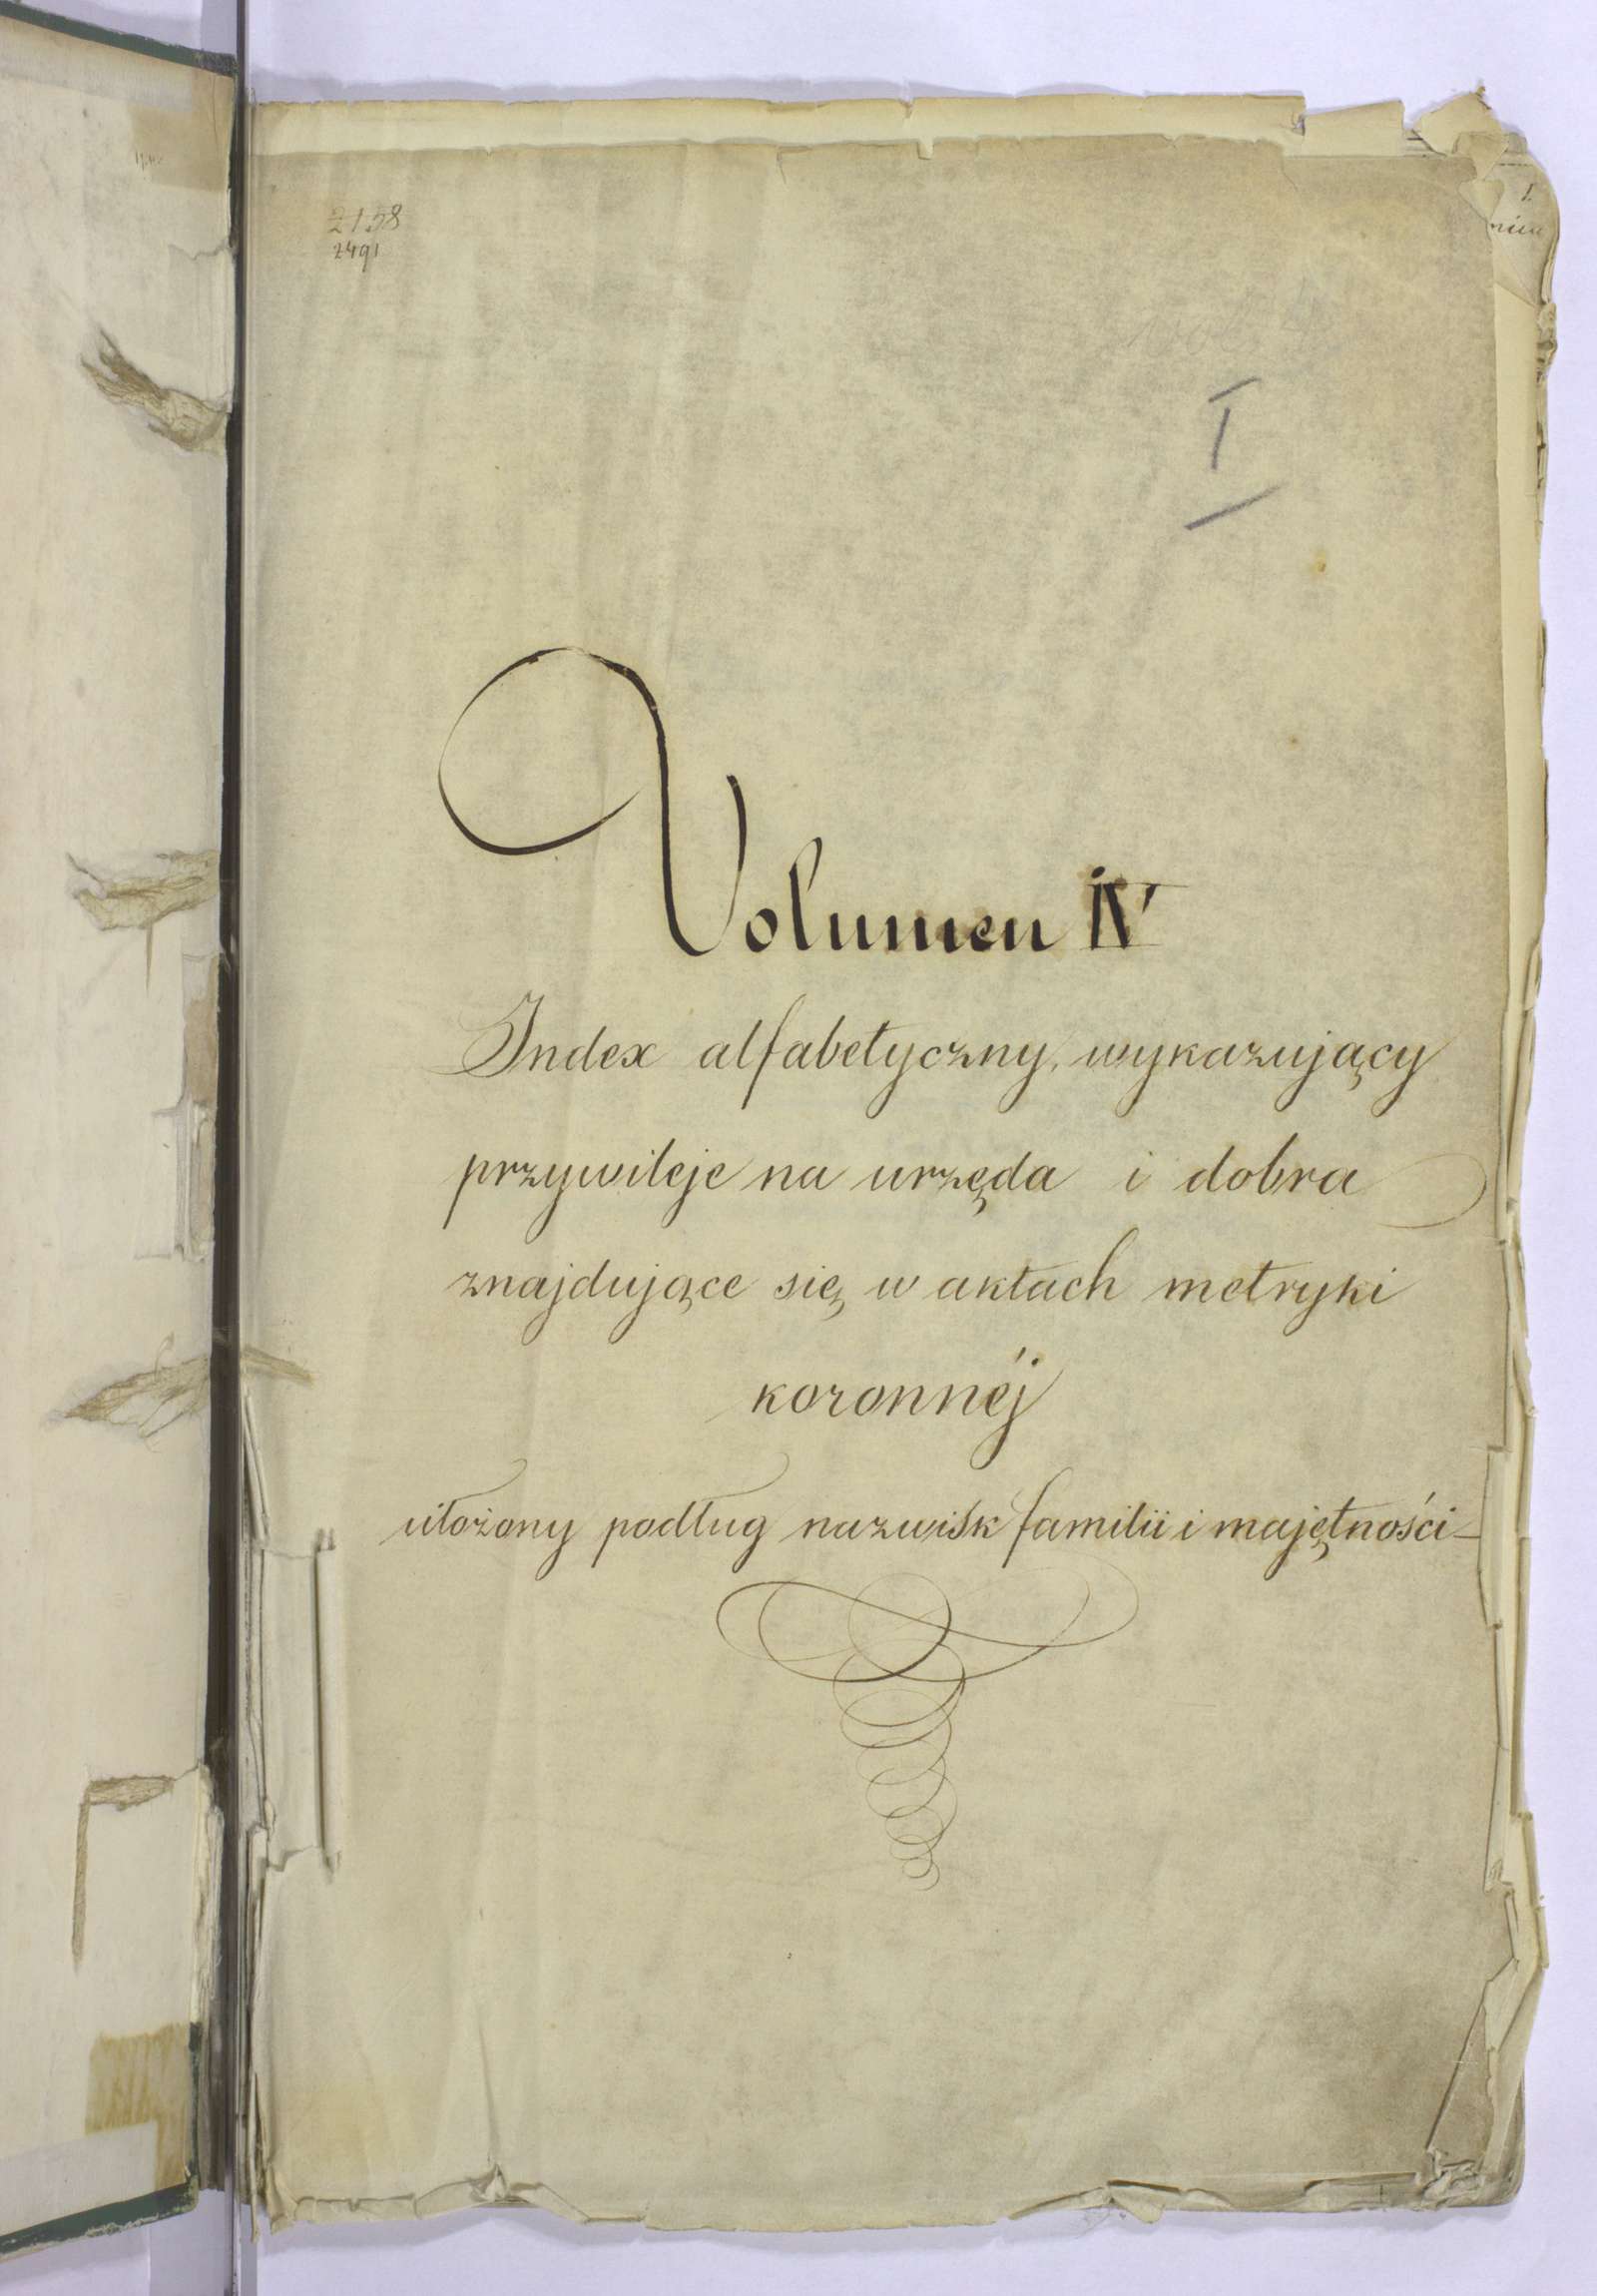 2158
2491
I
Volumen IV
Index alfabetyczny, wykazujący
przywileje na urzęda i dobra
znajdujące się w aktach metryki
koronnéj
ułożony podług nazwisk familii i majętności